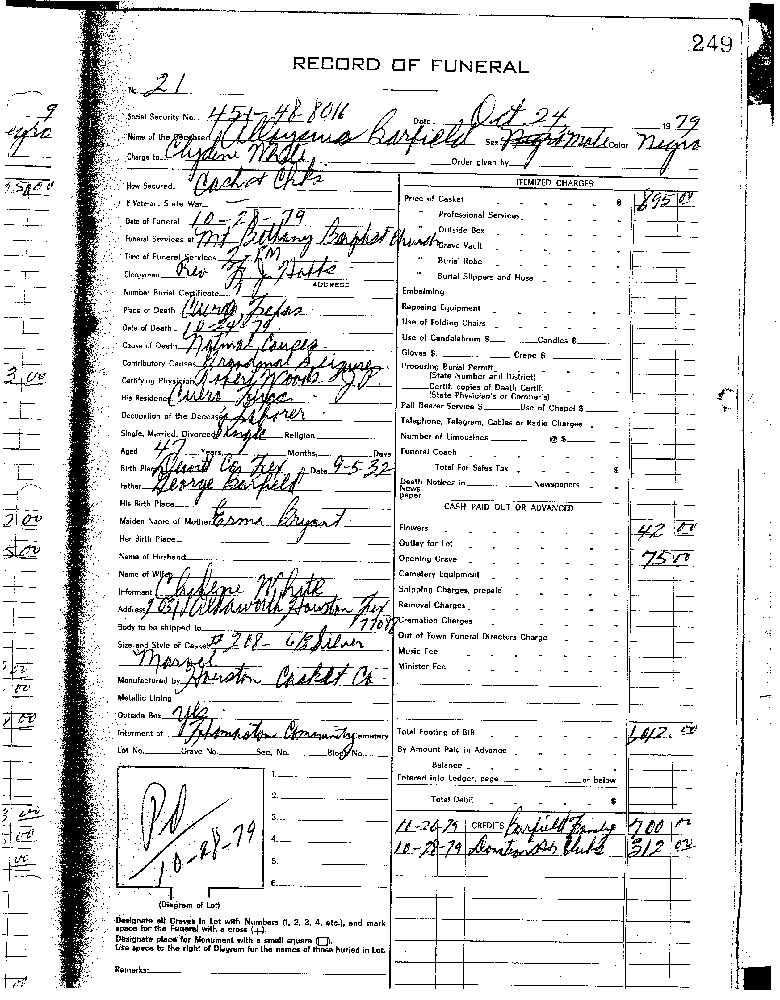 249
RECORD OF FUNERAL
No. 21
Social Security No. 451-48-8016 Date Oct. 24 1979
Name of the Deceased Barfield Sex Male Color Negro
Charge to Clydene White Order given by
How Secured Cash or Chks
If Veteran, State War
Date of Funeral 10-28-79
Funeral Services at Mt Bethany Baptist Church
Time of Funeral Services PM
Clergyman Rev
ADDRESS
Number Burial Certificate
Place of Death Cuero Texas
Date of Death 10-24-79
Cause of Death Natural Causes
Contributory Causes Grandmal Seizures
Certifying Physician Robert Woods J.P.
His Residence Cuero Texas
Occupation of the Deceased Laborer
Single, Married, Divorced Single Religion
Aged 47 Years, Months, Days
Birth Place Co Tex Date 9-5-32
Father George Barfield
His Birth Place
Maiden Name of Mother Erma Bryant
Her Birth Place
Name of Husband
Name of Wife
Informant Clydene White
Address Houston Tex
Body to be shipped to 
Size and Style of Casket # 208- 6/3 Silver
Marvel
Manufactured by Houston Casket Co
Metallic Lining
Outside Box yes
Interment at Community Cemetery
Lot No. Grave No. Sec. No. Block No.
PD
10-28-79
1
2
3
4
5
6
(Diagram of Lot)
Designate all Graves in Lot with Numbers (1, 2, 3, 4, etc.), and mark
space for the Funeral with a cross (+).
Designate place for Monument with a small square
Use space to the right of Diagram for the names of those buried in Lot.
Remarks:
ITEMIZED CHARGES
Price of Casket $ 895 00
" Professional Services
" Outside Box
" Grave Vault
" Burial Robe
" Burial Slippers and Hose
Embalming
Reposing Equipment
Use of Folding Chairs
Use of Candelabrum $ Candles $
Gloves $ Crepe $
Procuring Burial Permit
(State Number and District)
Certif. copies of Death Certif.
(State Physician's or Coroner's)
Pall Bearer Service $ Use of Chapel $
Telephone, Telegram, Cables or Radio Charges
Number of Limousines @ $
Funeral Coach
Total For Sales Tax $
Death Notices in Newspapers
News
paper
CASH PAID OUT OR ADVANCED
Flowers 42 00
Outlay for Lot
Opening Grave 75 00
Cemetery Equipment
Shipping Charges, prepaid
Removal Charges
Cremation Charges
Out of Town Funeral Directors Charge
Music Fee
Minister Fee
Total Footing of Bill 1,012.00
By Amount Paid in Advance
Balance
Entered into Ledger, page or below
Total Debit $
CREDITS Barfield Family 700 00
10-28-79 312 00